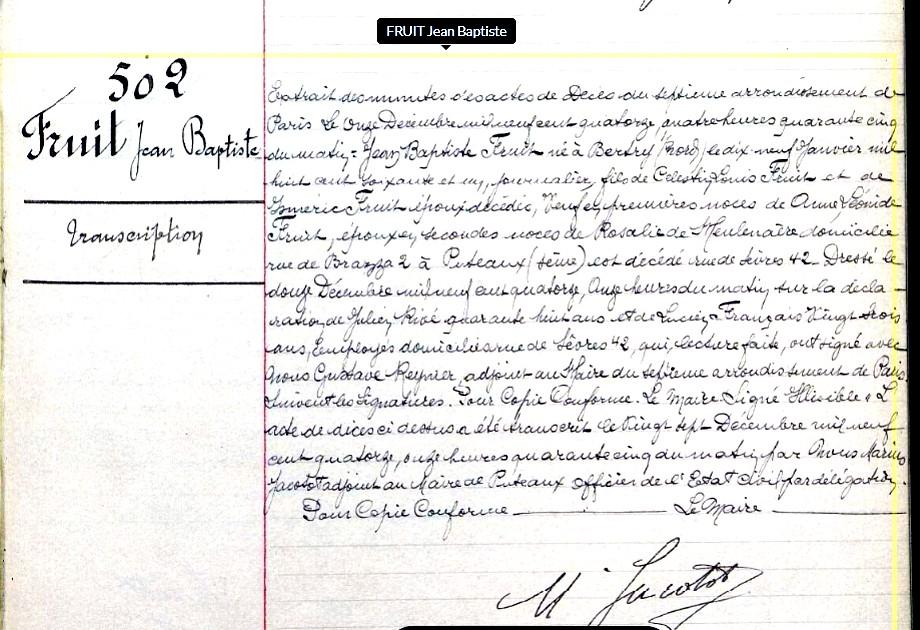 FRUIT Jean Baptiste
502
Fruit Jean Baptiste
Transcription
Extrait des minutes des actes de Décès du septième arrondissement de
Paris le Onze Décembre mil neuf cent quatorze, quatre heures quarante cinq
du matin = Jean Baptiste Fruit né à Bertry (Nord) le dix-neuf Janvier mil
huit cent soixante et un, journalier, fils de Célestin Louis Fruit et de
Fruit époux décédés, Veuf en premières noces de Anne Léonide
Fruit, époux en secondes noces de Rosalie de Meulenaère domicilié
rue de Brazza 2 à Puteaux (Seine) est décédé rue de Sèvres 42 _ Dressé le
douze Décembre mil neuf cent quatorze, Onze heures du matin sur la décla-
ration de Julien Rivé quarante huit ans et de Lucien Français Vingt trois
ans, Employés domiciliés rue de Sèvres 42, qui, lecture faite, ont signé avec
Nous Gustave Reynier, adjoint au Maire du septième arrondissement de Paris.
Suivent les Signatures. Pour Copie Conforme. Le Maire Signé Illisible. L
acte de décès ci dessus a été transcrit le Vingt sept Décembre mil neuf
cent quatorze, onze heures quarante cinq du matin, par Nous Marius
Jacotot adjoint au Maire de Puteaux officier de l'Etat Civil par délégation.
Pour Copie Conforme — Le Maire —
M Jacotot